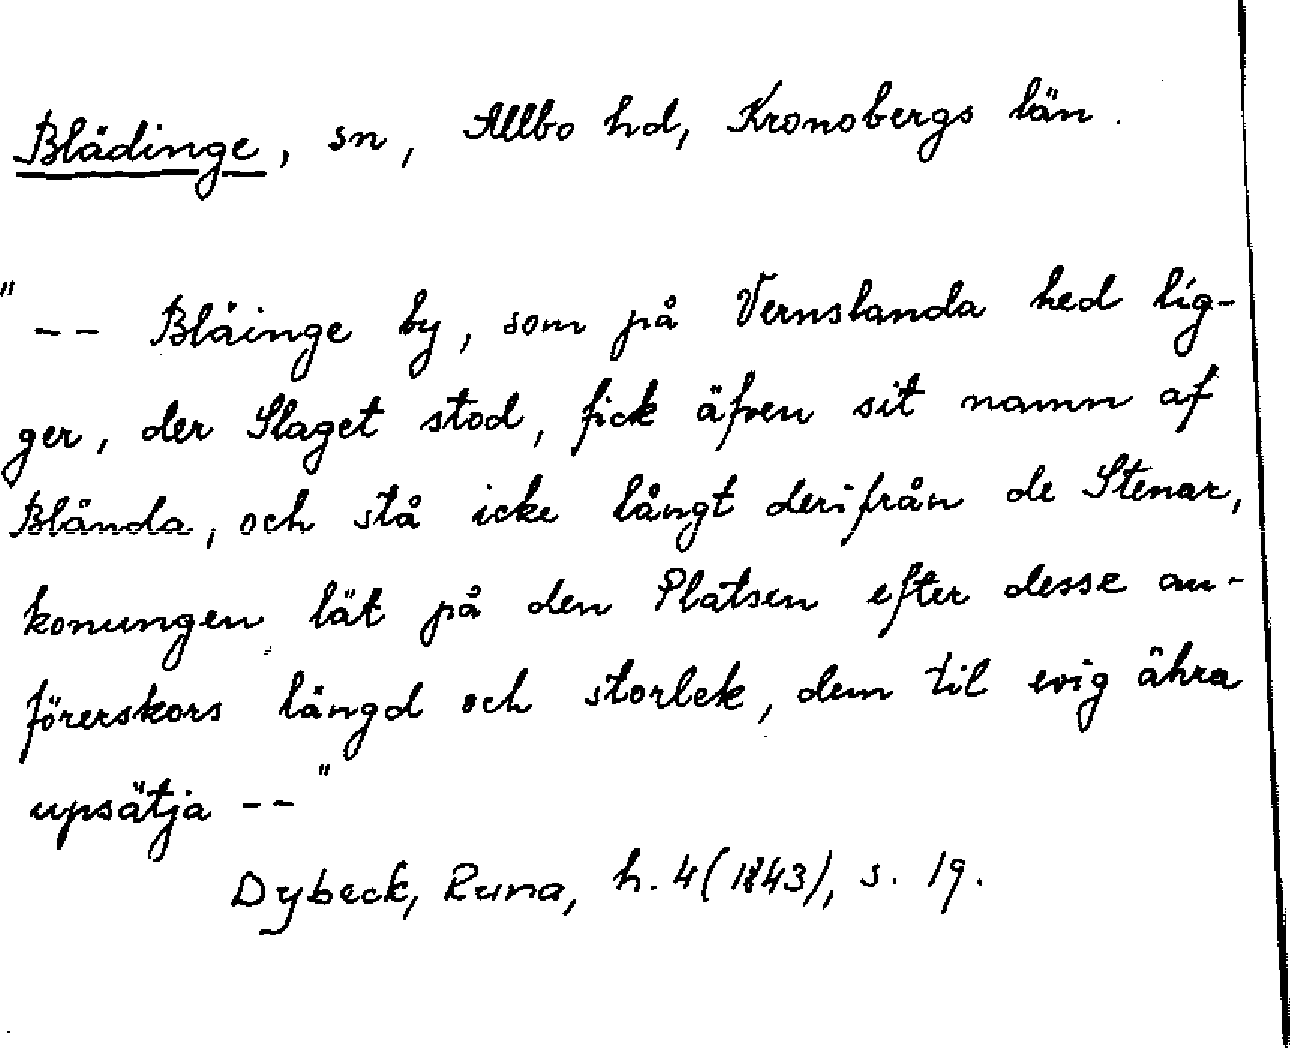 Blädinge, sn, Allbo hd, Kronobergs län.
"-- Bläinge by, som på Vernslanda hed lig-
ger, der Slaget stod, fick äfven sit namn af
Blända, och stå icke långt derifrån de Stenar,
konungen lät på den Platsen efter desse an-
förerskors längd och storlek, dem til evig ähra
upsätja --"
Dybeck, Runa, h. 4 (1843), s. 19.